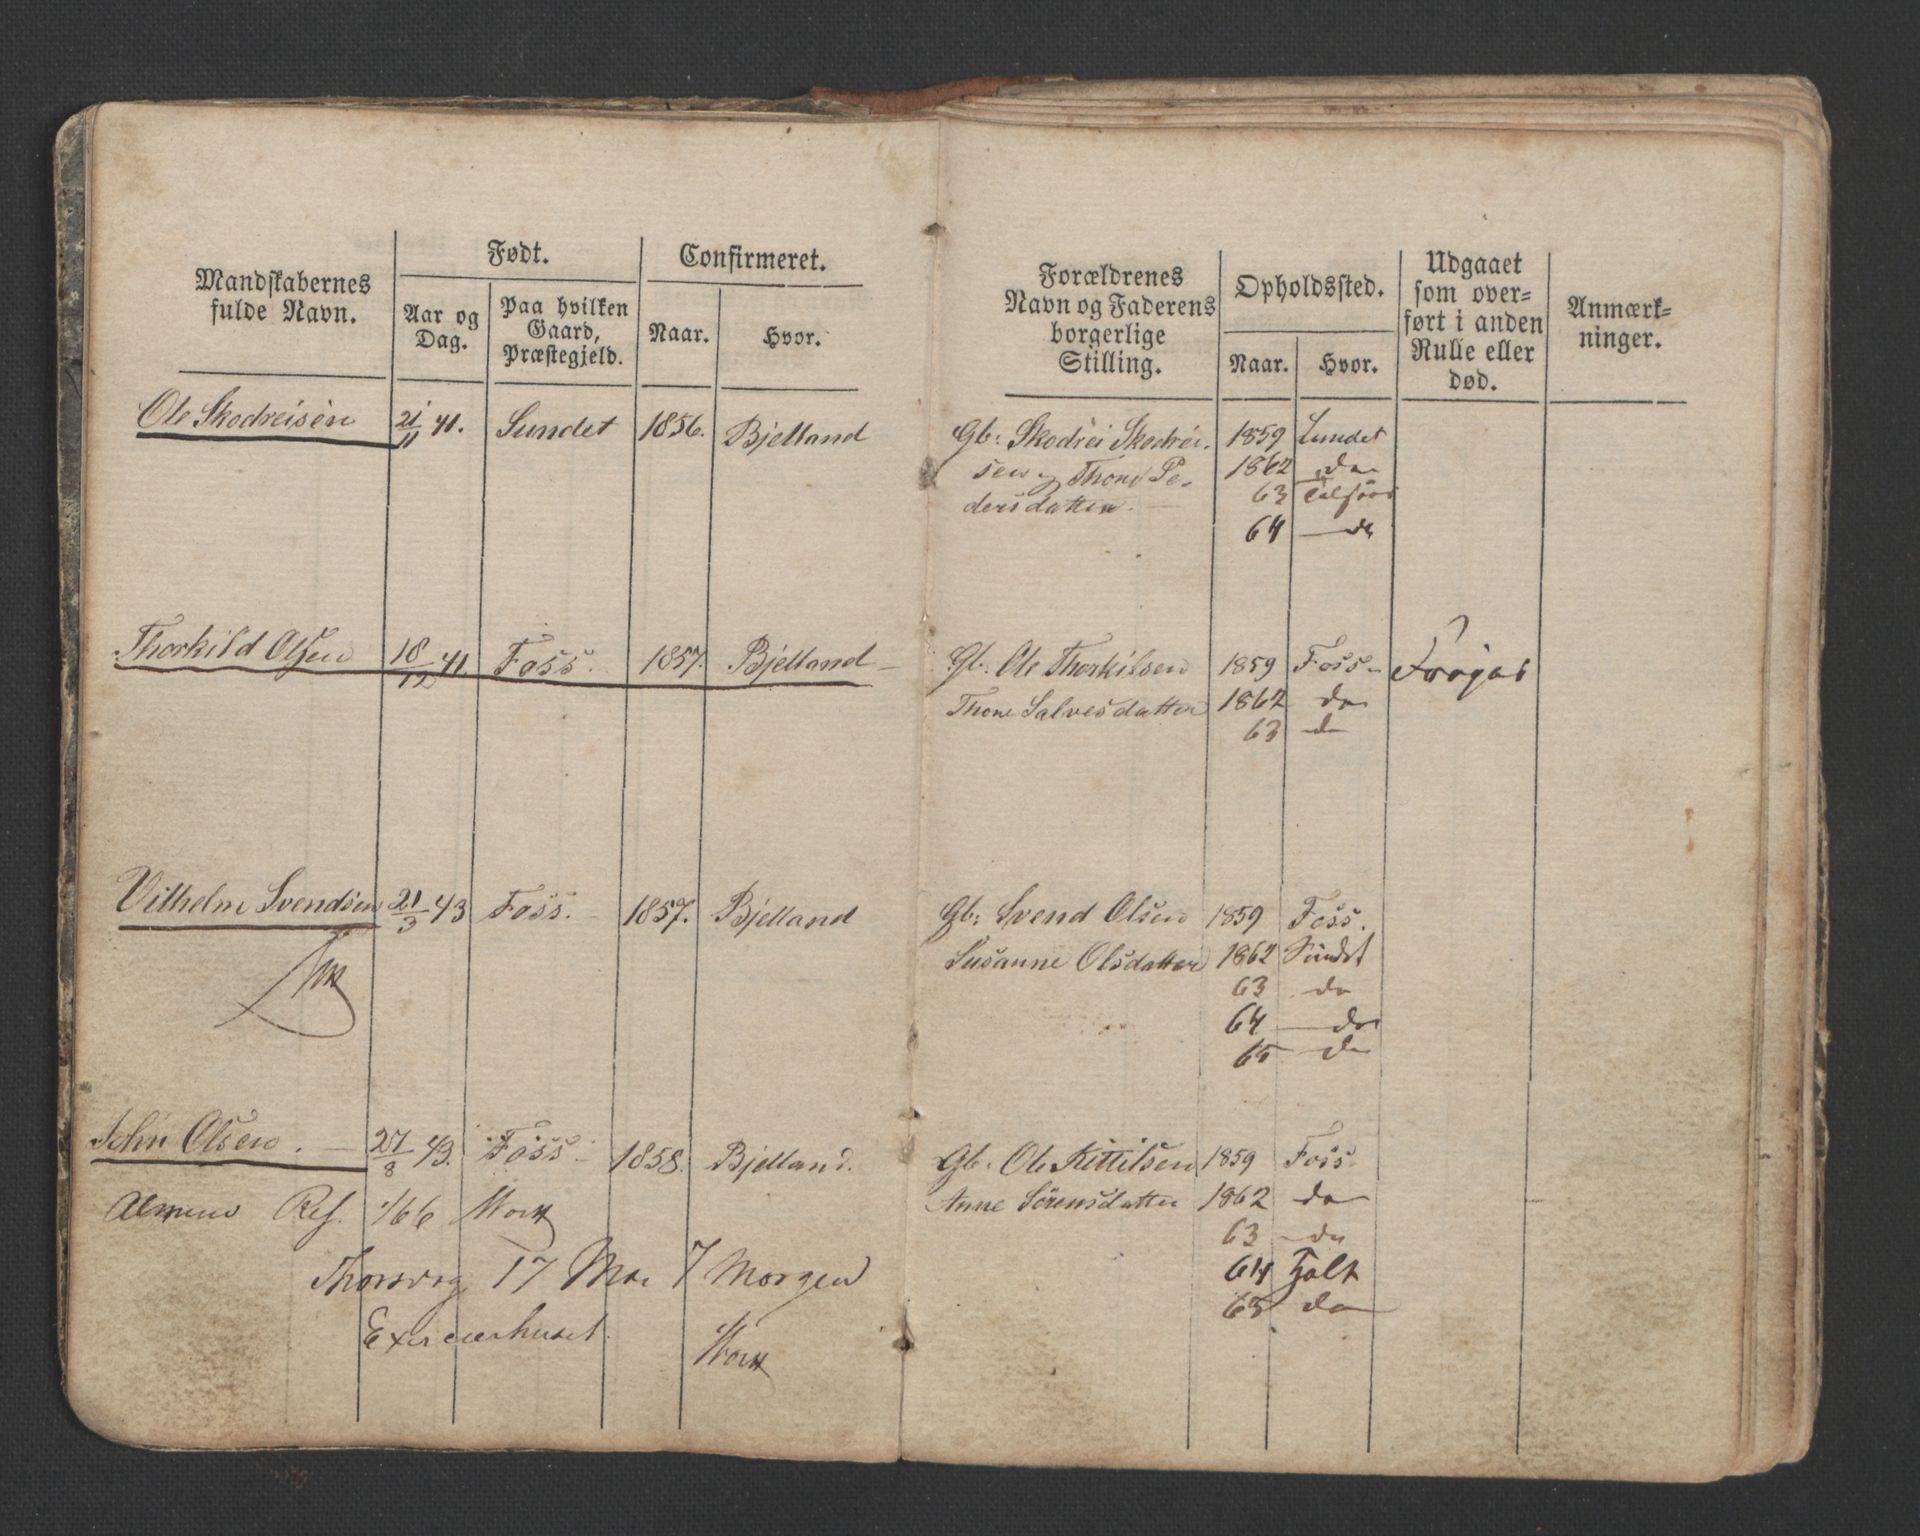 Mandskabernes
fulde Navn.
Født.
Aar og
Dag.
Paa hvilken
Gaard,
Præstegjeld.
Confirmeret.
Naar.
Hvor.
Forældrenes
Navn og Faderens
borgerlige
Stilling.
Opholdssted.
Naar.
Hvor.
Udgaaet
som over-
ført i anden
Rulle eller
død.
Anmærk-
ninger.
Ole Skodreisen 21/11 41. Sundet 1856. Bjelland
Gb: Skodrei Skodrei- 1859 Sundet
sen og Thone Pe- 1862 do
dersdatter. 63
64 — do
Thorkild Olsen 18/12 41. Foss. 1857. Bjelland
Gb: Ole Thorkilsen 1859 Foss
Thone Salvesdatter 1862 do
63 do
Vilhelm Svendsen 21/3 43 Foss. 1857. Bjelland
Gb: Svend Olsen 1859 Foss.
Susanne Olsdatter 1862 Sundet
63 do
64 — do
65 do
John Olsen. 27/8 43. Foss 1858. Bjelland.
Gb. Ole Kittilsen 1859 Foss
Anne Sørensdatter 1862 do
63 do
64 Holt
65 do
Ref. 1/66
17 Mai 7 Morgen
Exerceerhuset.